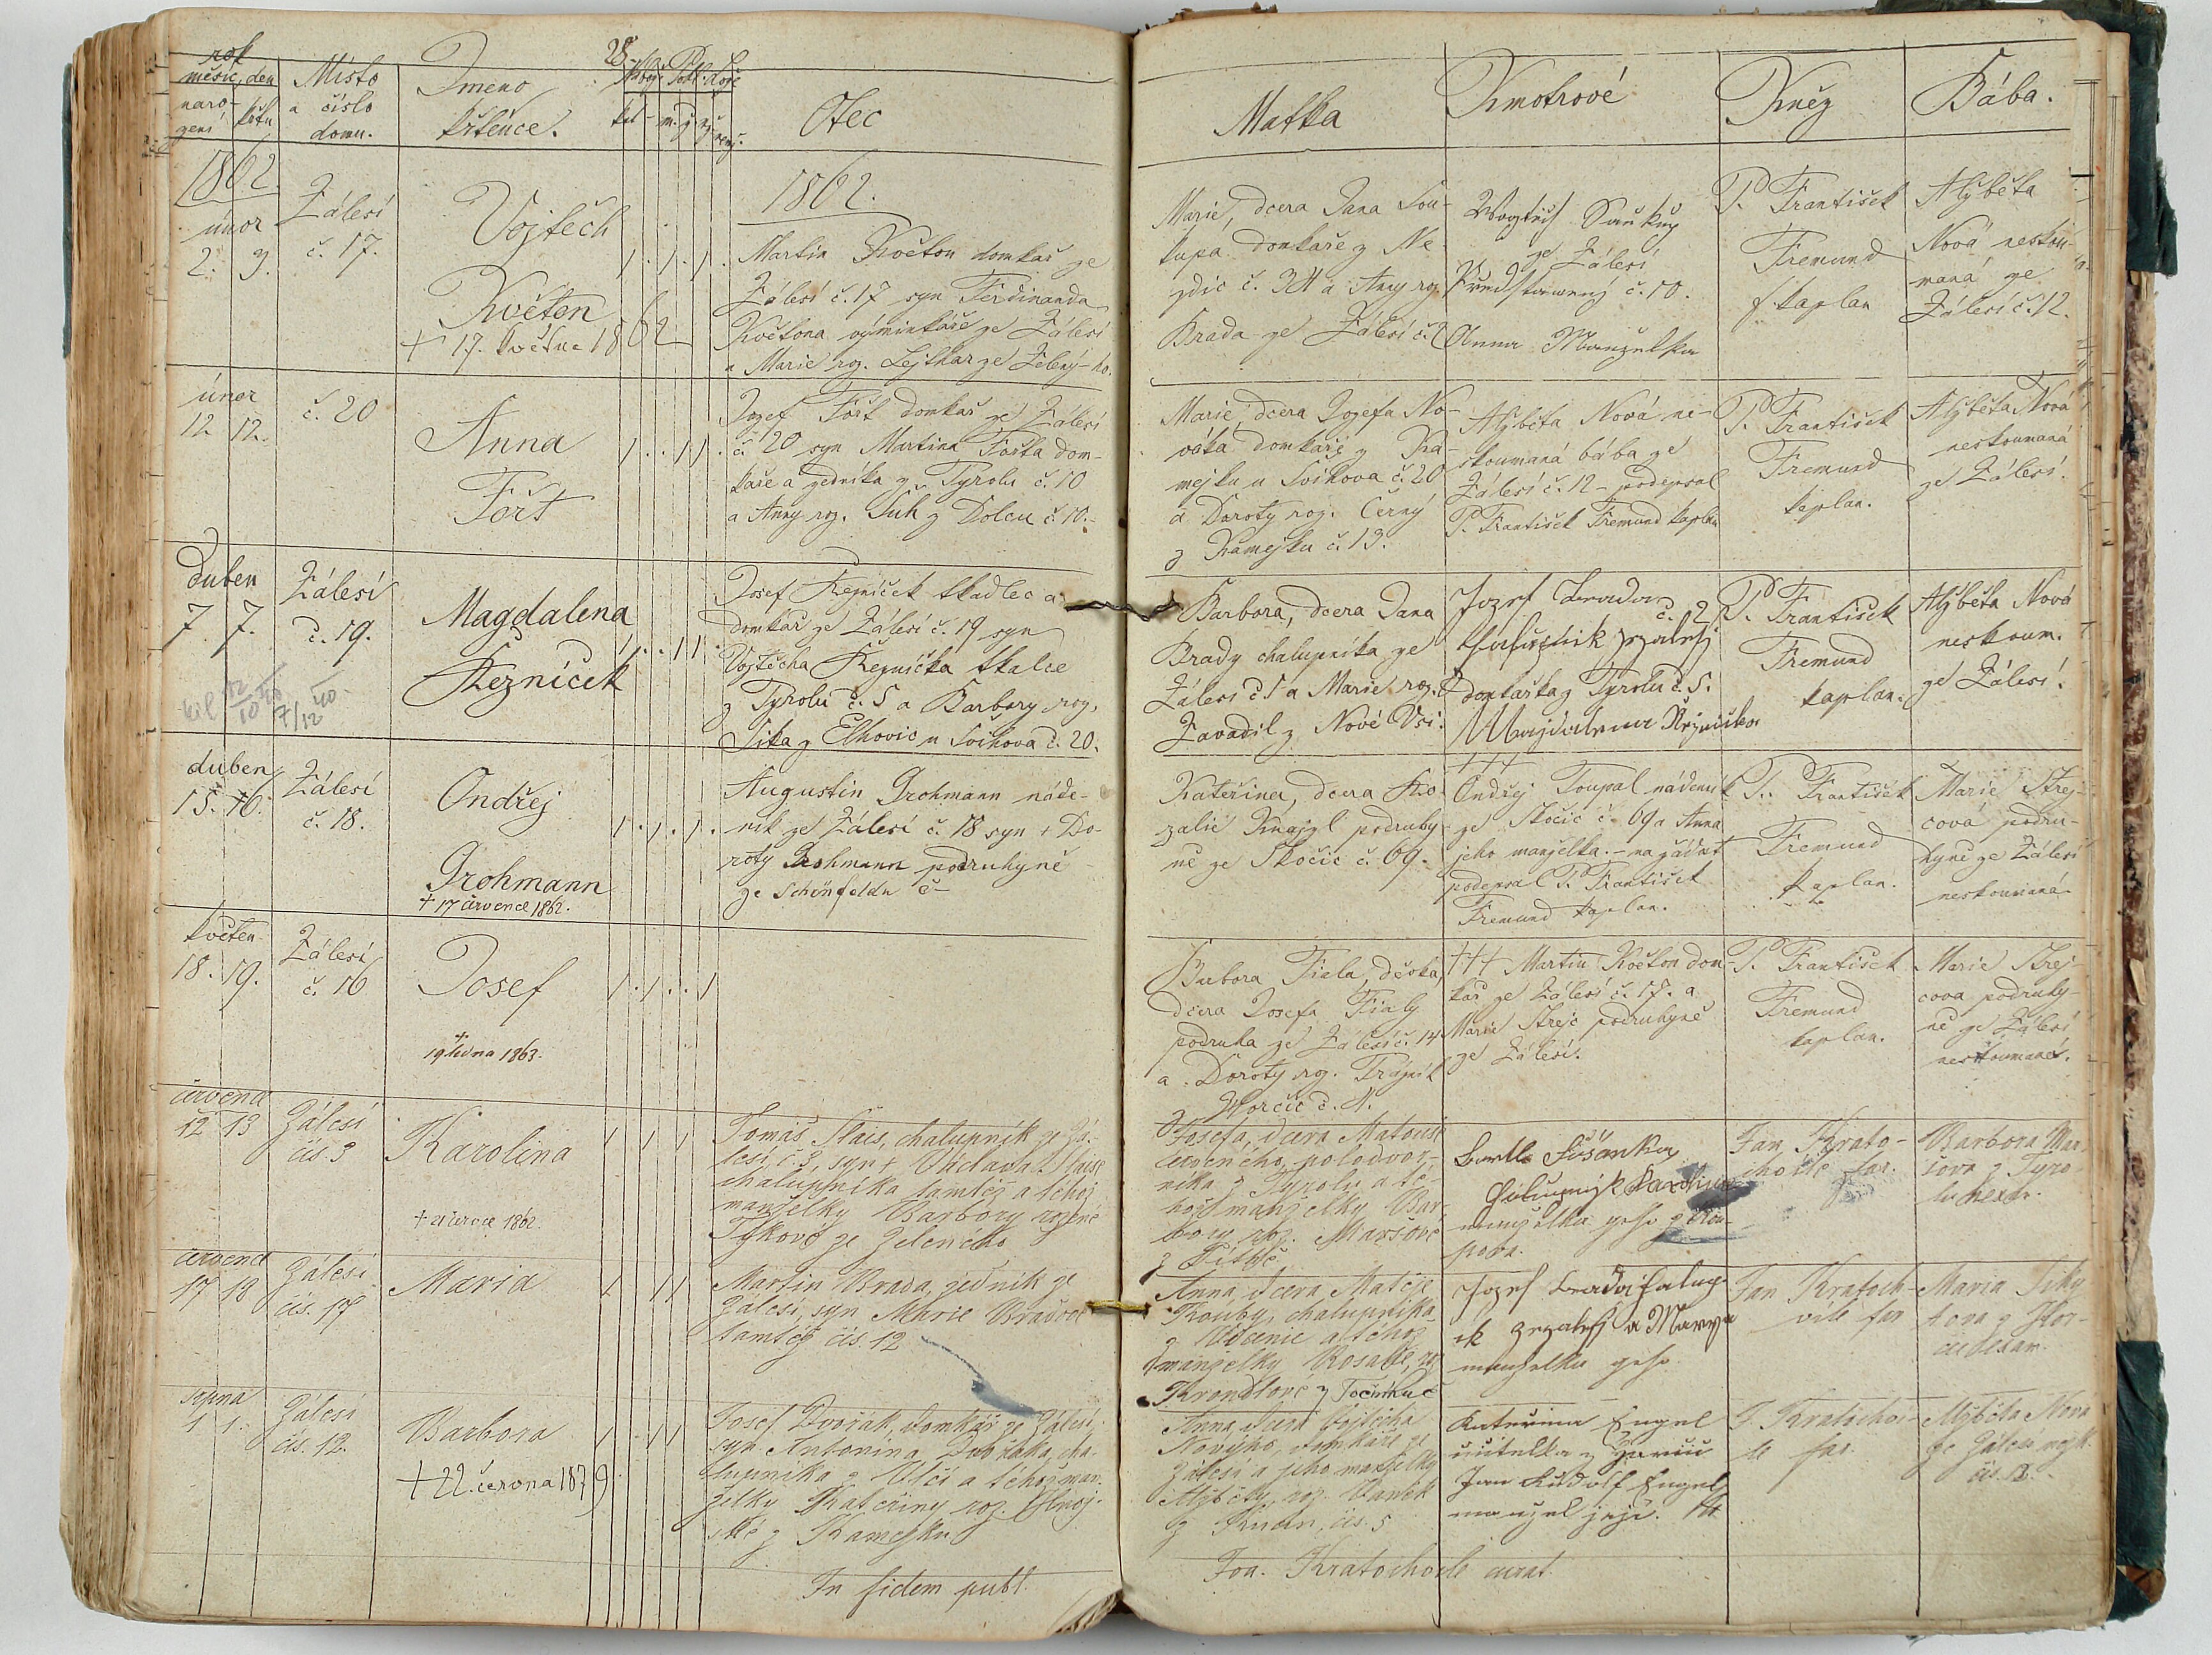 rok
měsíc, den
naro-
gení
křtu
Místo
a číslo
domu.
Jmeno
křtěnce.
Otec
Matka
Kmotrové
Kněz
Bába.
1862
únor
2. 3.
Zálesí
č. 17.
Vojtěch
Květon
+ 17. května 1862
1862.
Martin Květon domkař ze
Zálesí č. 17 syn Ferdinanda
Květona výminkáře ze Zálesí
a Marie roz.
Marie, dcera Jana Sou-
kupa domkaře z Ne-
zdic č. 34 a Anny roz.
Brada ze Zálesí č. 2
ze Zálesí
Představený č. 10.
Anna Manželka
P. František
Fremund
kaplan
Alžběta
Nová neskou-
maná ze
Zálesí č. 12.
únor
12 12.
č. 20
Anna
Fořt
Jozef Fořt domkař ze Zálesí
č. 20 syn Martina Fořta dom-
kaře a zedníka z Tyrolu č. 10
a Anny roz. Suh z Dolcu č. 10.
Marie, dcera Jozefa No-
váka domkaře z Ka-
mejku u Svihova č. 20
a Doroty roz. Černý
z Kamejku č. 13.
Alžběta Nová ne-
skoumaná bába ze
Zálesí č. 12 - podepsal
P. František Fremund kaplan
P. František
Fremund
kaplan.
Alžběta Nová
neskoumaná
ze Zálesí.
duben
7. 7.
Zálesí
č. 19.
Magdalena
Řezníček
Josef Řezníček tkadlec a
domkař ze Zálesí č. 19 syn
Vojtěcha Řezníčka tkalce
z Tyrolu č. 5 a Barbory roz.
Sika z Elhovic u Svihova č. 20.
Barbora, dcera Jana
Brady chalupníka ze
Zálesí č. 1 a Marie roz.
Zavadil z Nové Vsi.
Jozef Brada
č. 2
domkařka z Tyrolu č. 5.
Majdalena Řezníčko
P. František
Fremund
kaplan.
Alžběta Nová
neskoum.
ze Zálesí.
duben
15. 16.
Zálesí
č. 18.
Ondřej
Grohmann
+ 17 července 1862.
Augustin Grohmann náde-
ník ze Zálesí č. 18 syn + Do-
roty Grohmann podruhyně
ze Schönfeldu č -
Kateřina, dcera Ro-
zalie Knajzl podruhy-
ně ze Skočic č. 69.
+++
Ondřej Toupal nádeník
ze Skočic č. 69 a Anna
jeho manželka. - na žádost
podepsal P. František
Fremund kaplan.
P. František
Fremund
kaplan.
Marie Strej-
cová podru-
hyně ze Zálesí
neskoumaná
květen
18. 19.
Zálesí
č. 16
Josef
+
19 ledna 1863.
Barbora Fiala, děvka,
dcera Josefa Fialy
podruha ze Zálesí č. 14
a Doroty roz.
z Horčic č. 4.
+++ Martin Květon dom-
kář ze Zálesí č. 17. a
Marie Strejc podruhyně
ze Zálesí.
P. František
Fremund
kaplan.
Marie Strej-
cova podruhy-
ně ze Zálesí
neskoumaná.
července
12 13
Zálesí
čís. 3
Karolina
+ 21 července 1862.
Tomáš Slais, chalupník ze Zá-
lesí č. 3, syn + Václava Slaise
chalupníka tamtéž a téhož
manželky Barbory rozené
Týkové ze Zeleného
Josefa, dcera Matouše
Červeného polodvor-
níka z Tyrolu a té-
hož manželky Bar-
bory roz. Maršové
Jan Krato-
chvile far.
Barbora Mar-
šova z Tyro-
lu
července
17 18
Zálesí
čís. 17
Maria
Martin Brada, zedník ze
Zálesí, syn Marie Bradové
tamtéž čís. 12
Anna dcera Matěje
Kouby, chalupníka
manželky Rosalie, roz
Jozef Brada
a Marya
manželka geho
Jan Kratoch-
vile far
Maria
srpna
1 1.
Zálesí
čís. 12.
Barbora
+ 22. června 1879
Josef Dvořák, domkář ze Zálesí,
syn Antonina Dvořáka, cha-
lupníka z Vlčí a téhož man-
želky Kateřiny roz.
ské z Kamejku
Anna dcera Vojtěcha
Nového, domkáře ze
Zálesí a jeho manželky
Alžběty, roz. Vaněk
čís. 5
Kateřina Engel
učitelka z
Jan Rudolf Engel
manžel její.
J. Kratochvi-
le far.
Alžběta Nova
ze Zálesí
čís. 12.
In fidem publ.
Joa. Kratochvile curat.